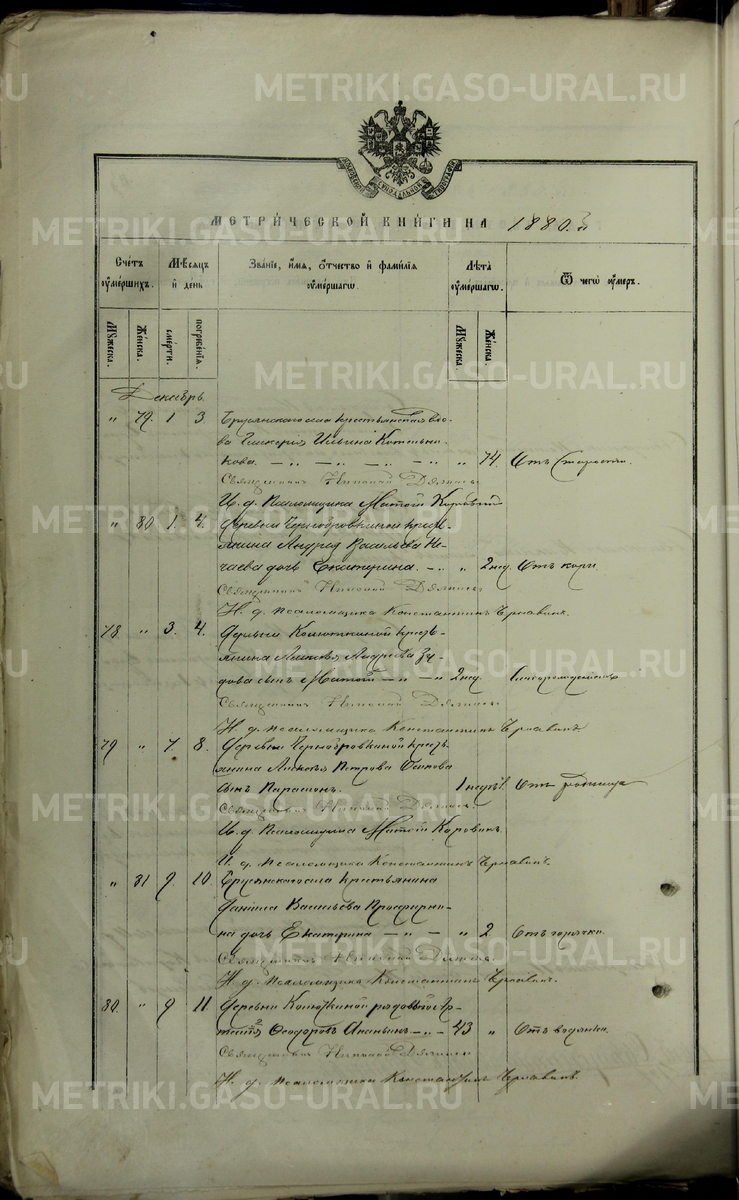 МЕТРИ́ЧЕСКОЙ КНИ́ГИ НА 1880 г.
Сче́тъ ᲂу҆ме́ршихъ.
Мѣ́сяцъ и҆ день
Зва́нїе, и҆́мѧ, ѻ҆́тчество и҆ фами́лїѧ ᲂу҆ме́ршагѡ.
Лѣ́та ᲂу҆ме́ршагѡ.
Ѿ чегѡ̀ ᲂу҆́меръ.
Мꙋ́жеска.
Же́нска.
сме́рти.
погребе́нїѧ.
Мꙋ́жеска.
Же́нска.
Декабрь
" 79. 1 3 Брусянскаго села крестьянская вдо-
ва Гликерія Ильина Котельни-
кова. " 74. Отъ старости.
Священникъ Николай
И. д. Псаломщика Матвій Коровинъ
" 80. 1. 4. Деревни Чернобровкиной крест-
янина Андрея Васильева Не-
чаева дочь Екатерина. " 2 нед. Отъ кори.
Священникъ Николай
И. д. псаломщика Константинъ Чернавинъ.
78. " 3. 4. Деревни Колюткиной кресть-
янина Алексѣя Андреева
сынъ Матвій 2 нед. Слаборожденный
Священникъ Николай
И. д. псаломщика Константинъ Чернавинъ
79 " 7 8. Деревни Чернобровкиной кресть-
янина Алексѣя Петрова
сынъ Парамонъ. 1 недѣл. Отъ родимца
Священникъ Николай
И. д. Псаломщика Матвій Коровинъ.
И. д. псаломщика Константинъ Чернавинъ.
" 81 9. 10. Брусянскаго села крестьянина
Даніила Васильева Просвирни-
на дочь Екатерина " 2 Отъ горячки.
Священникъ Николай
И. д. псаломщика Константинъ Чернавинъ.
80. " 9 11. Деревни Колюткиной рядовый
Ѳеодоръ Ананьинъ 43 " Отъ водянки.
Священникъ Николай
И. д. псаломщика Константинъ Чернавинъ.
METRIKI.GASO-URAL.RU